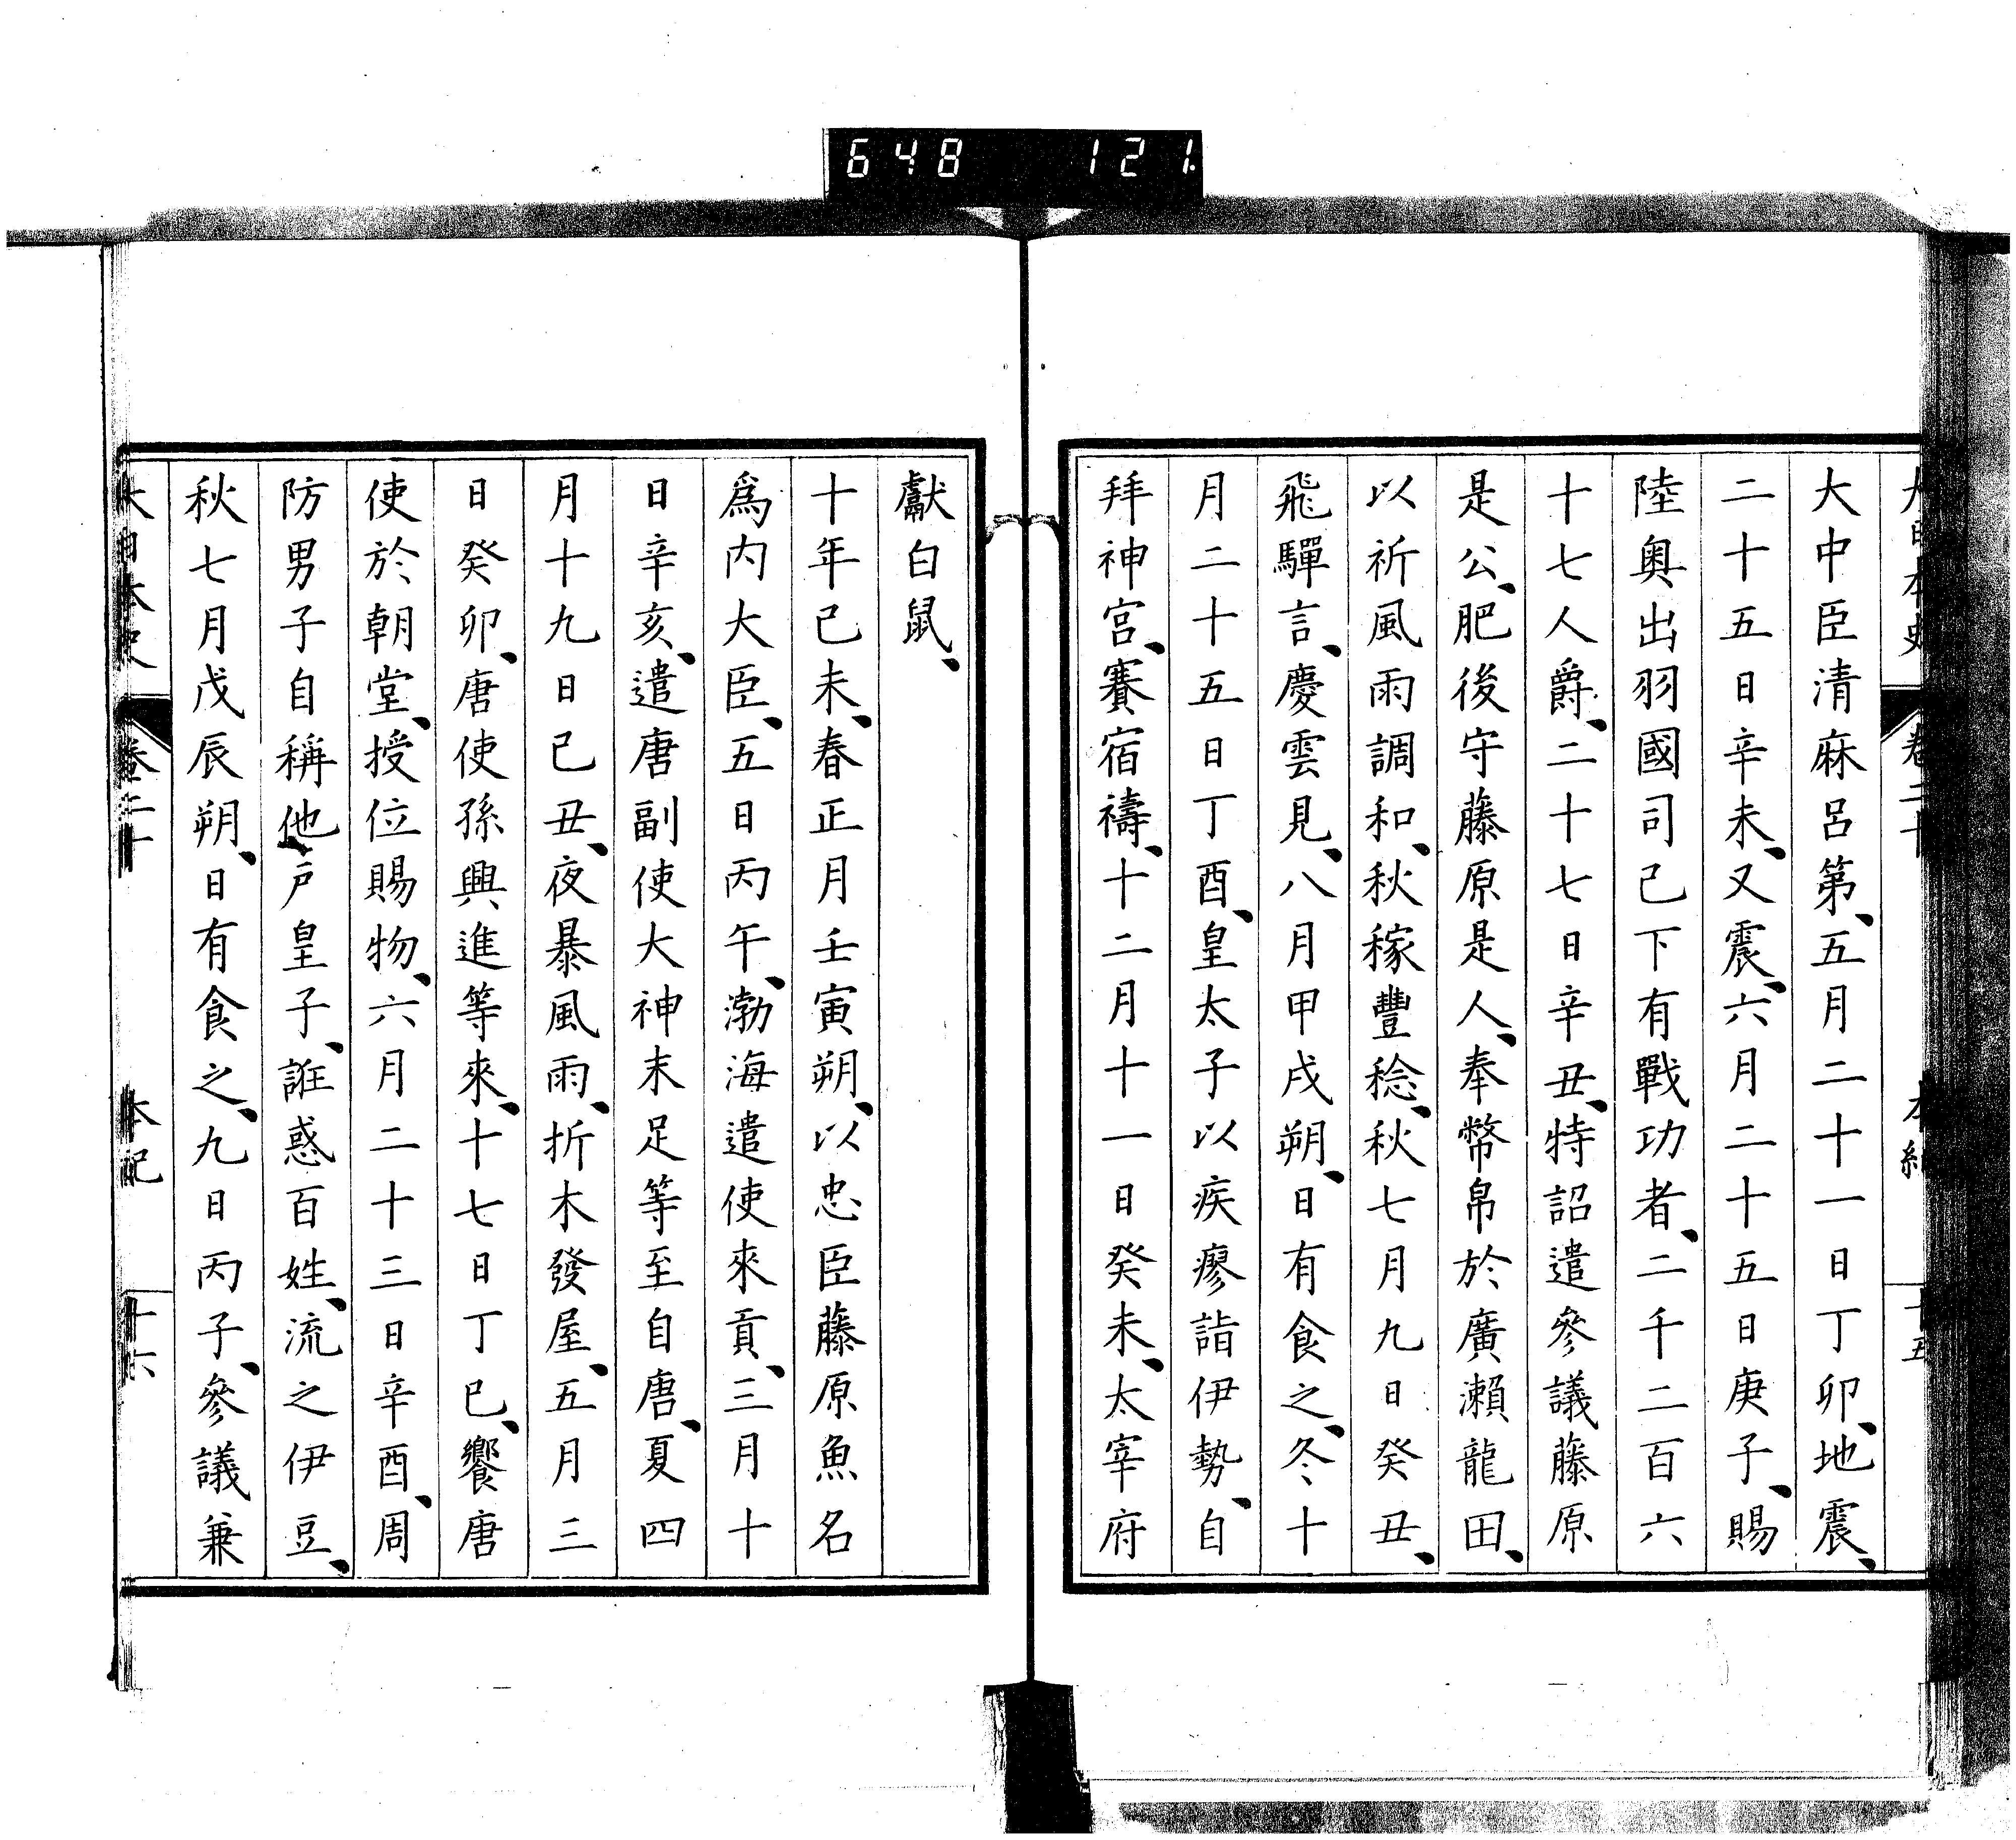 648 121
大日本史 卷二十 本紀 十五
大中臣清麻呂第、五月二十一日丁卯、地震、
二十五日辛未、又震、六月二十五日庚子、賜
陸奧出羽國司己下有戰功者、二千二百六
十七人爵、二十七日辛丑、特詔遣參議藤原
是公、肥後守藤原是人、奉幣帛於廣瀨龍田、
以祈風雨調和、秋稼豐稔、秋七月九日癸丑、
飛驒言、慶雲見、八月甲戌朔、日有食之、冬十
月二十五日丁酉、皇太子以疾瘳詣伊勢、自
拜神宮、賽宿禱、十二月十一日癸未、太宰府
獻白鼠、
十年己未、春正月壬寅朔、以忠臣藤原魚名
爲内大臣、五日丙午、渤海遣使來貢、三月十
日辛亥、遣唐副使大神末足等至自唐、夏四
月十九日己丑、夜暴風雨、折木發屋、五月三
日癸卯、唐使孫興進等來、十七日丁巳、饗唐
使於朝堂、授位賜物、六月二十三日辛酉、周
防男子自稱他戶皇子、誑惑百姓、流之伊豆、
秋七月戊辰朔、日有食之、九日丙子、參議兼
大日本史 卷二十 本紀 十六